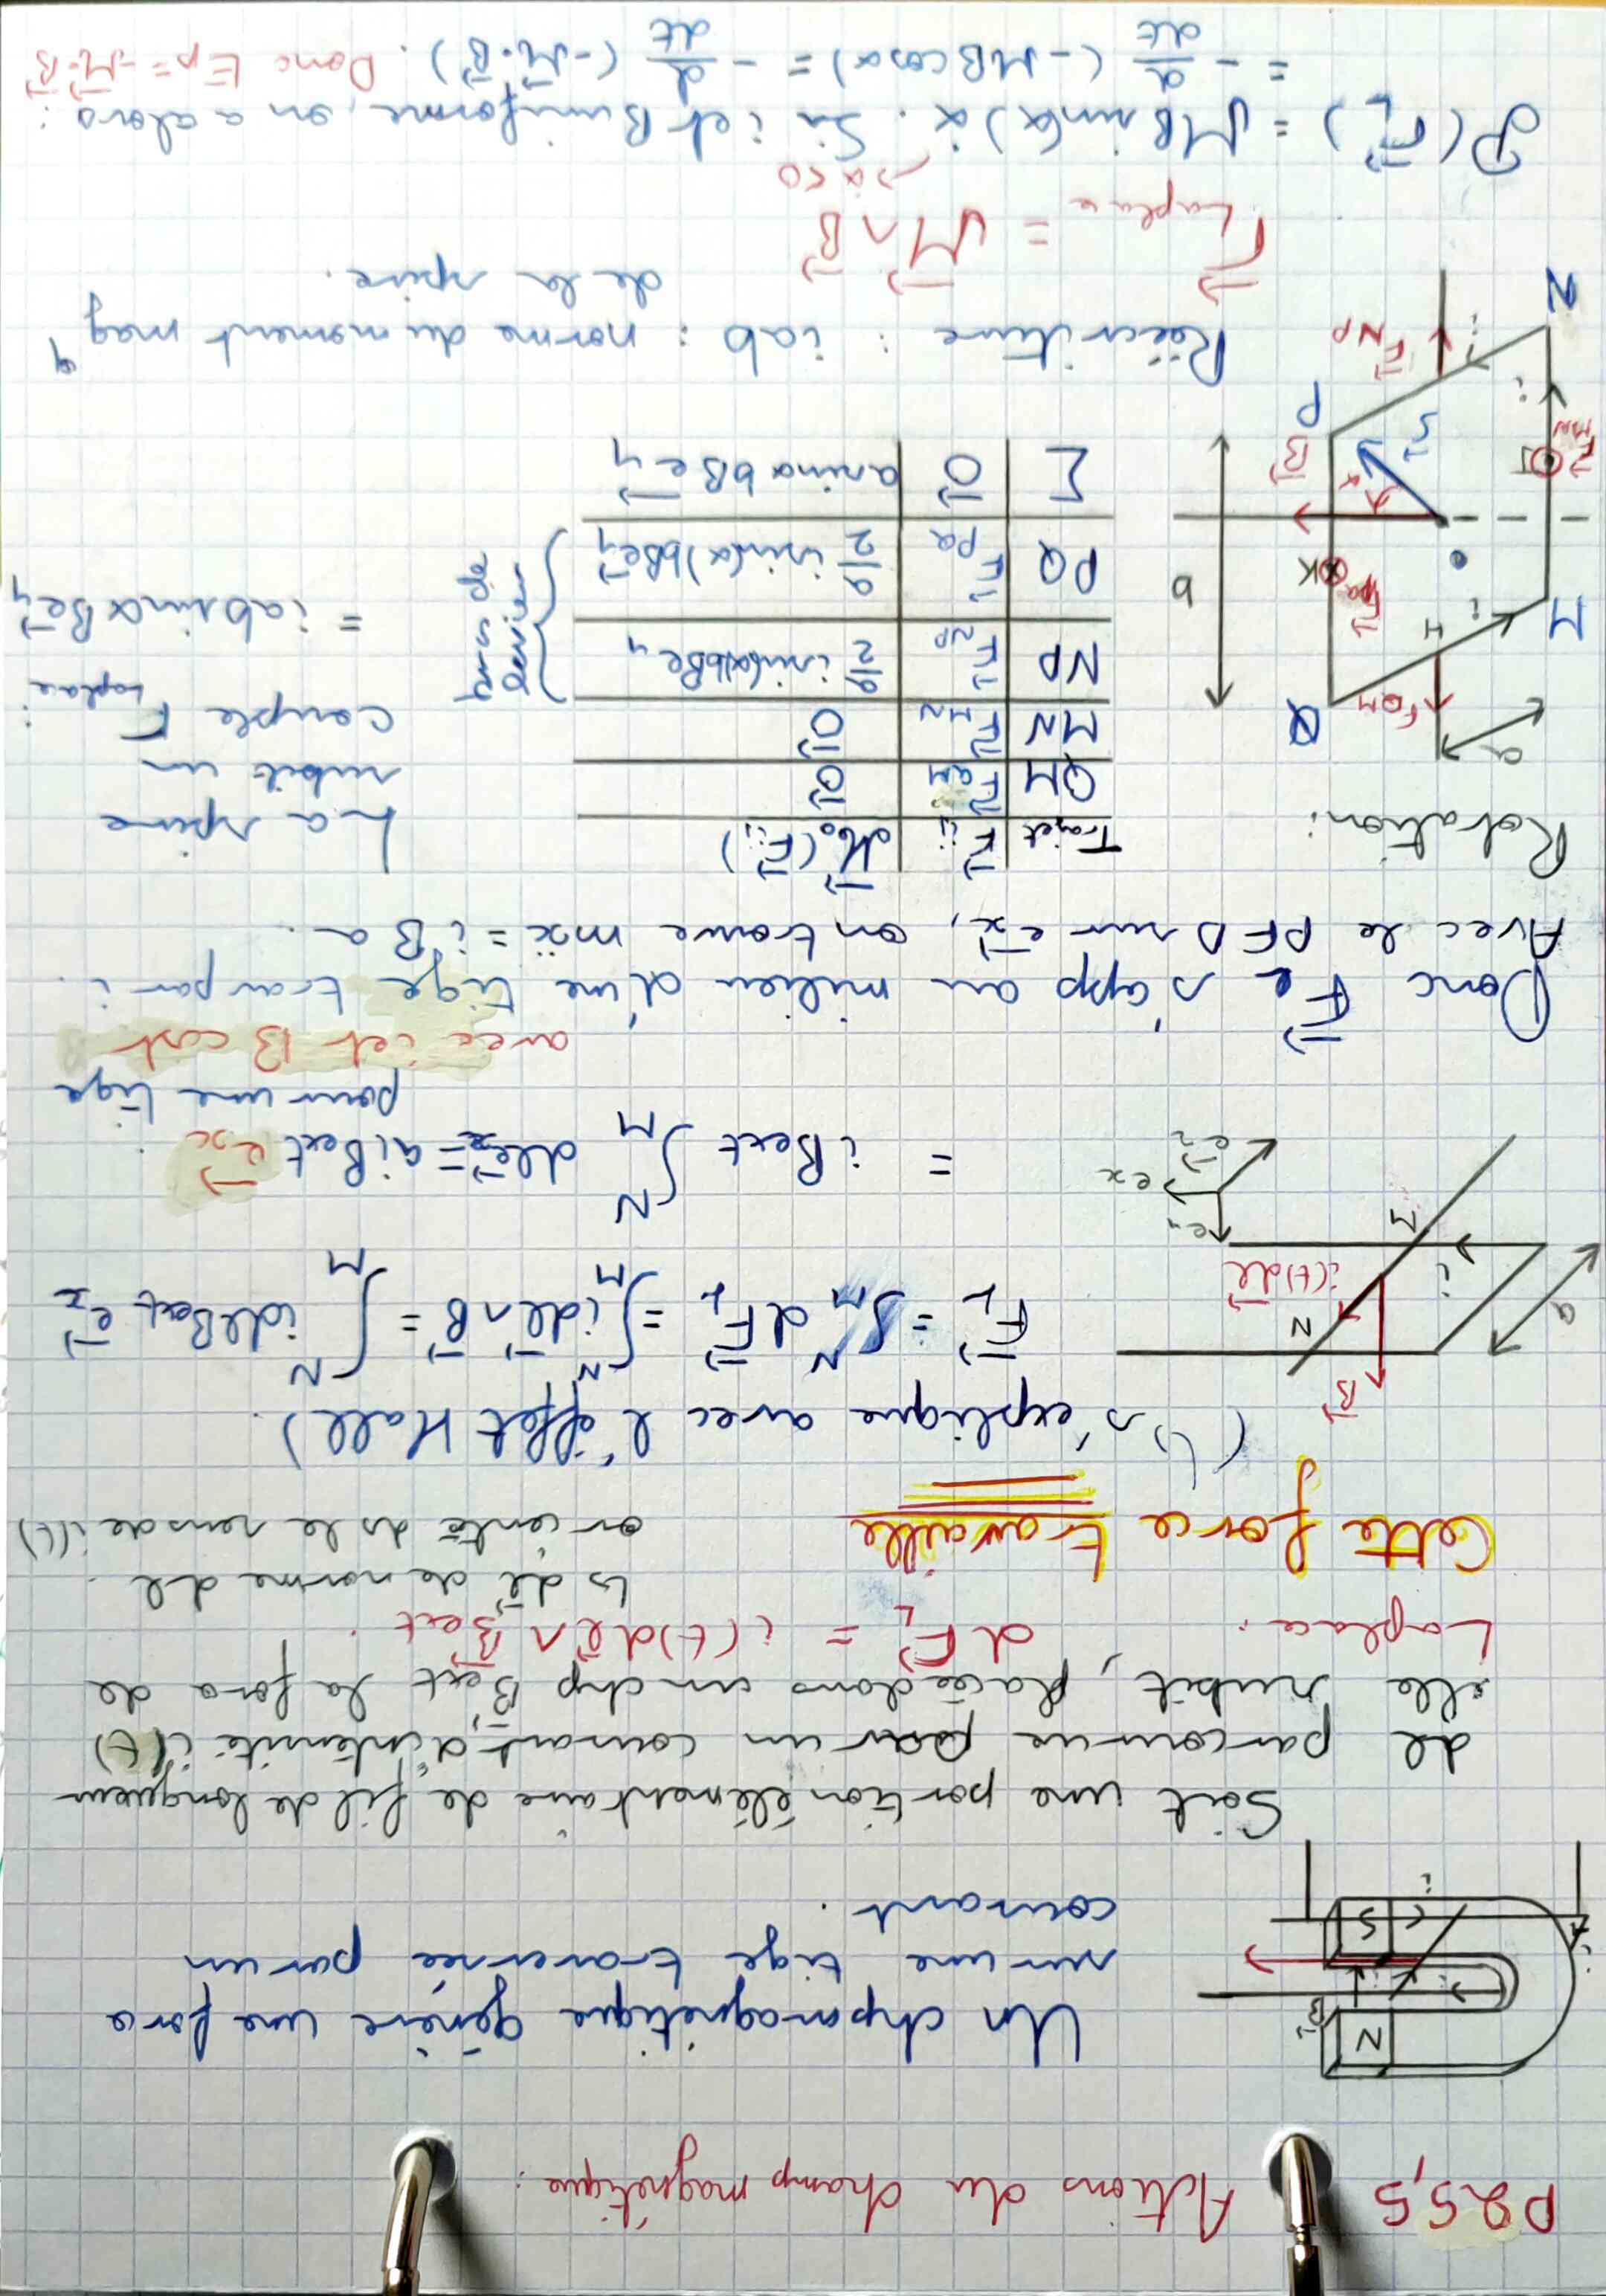 P25,5 Actions du champ magnétique :
N
S
B⃗
i
i
i
Un chp magnétique génère une force
sur une tige traversée par un
courant.
Soit une portion élémentaire de fil de longueur
dl parcourue par un courant d'intensité i(t)
elle subit, placée dans un chp B⃗ext la force de
Laplace : dF⃗L = i(t)dl⃗ ∧ B⃗ext.
↳ dl⃗ de norme dl
orienté ds le sens de i(t)
Cette force travaille
(↳ s'explique avec l'effet Hall)
B⃗
N
M
a
i
i(t)dl⃗
ey⃗
ex⃗
ez⃗
F⃗L = ∫_M^N dF⃗L = ∫_M^N idl⃗ ∧ B⃗ = ∫_M^N idlBext e⃗x
= iBext ∫_M^N dl e⃗x = aiBext e⃗x
pour une tige
avec i et B cost
Donc F⃗L s'app au milieu d'une tige trav par i.
Avec le PFD sur e⃗x, on trouve mẍ = iBa.
Rotation :
Trajet | F⃗ij | M⃗o(F⃗ij)
QM | F⃗QM | 0⃗
MN | F⃗MN | 0⃗
NP | F⃗NP | a/2 i sin(α)bBe⃗y
PQ | F⃗PQ | a/2 i sin(α)bBe⃗y
Σ | 0⃗ | a sin α bBe⃗y
La spire
subit un
couple Γ Laplace :
= iab sin α Be⃗y
a
Q
F⃗QM
H
M
i
F⃗PQ
K
O
b
α
B⃗
S⃗
J
F⃗MN
P
i
i
F⃗NP
N
Réécriture : iab : norme du moment magq
de la spire.
Γ⃗Laplace = M⃗ ∧ B⃗
→ α̇ < 0
P(F⃗L) = MB sin(α) α̇. Si i et B uniforme, on a alors :
= - d/dt (-MB cos α) = - d/dt (-M⃗·B⃗). Donc Ep = -M⃗·B⃗